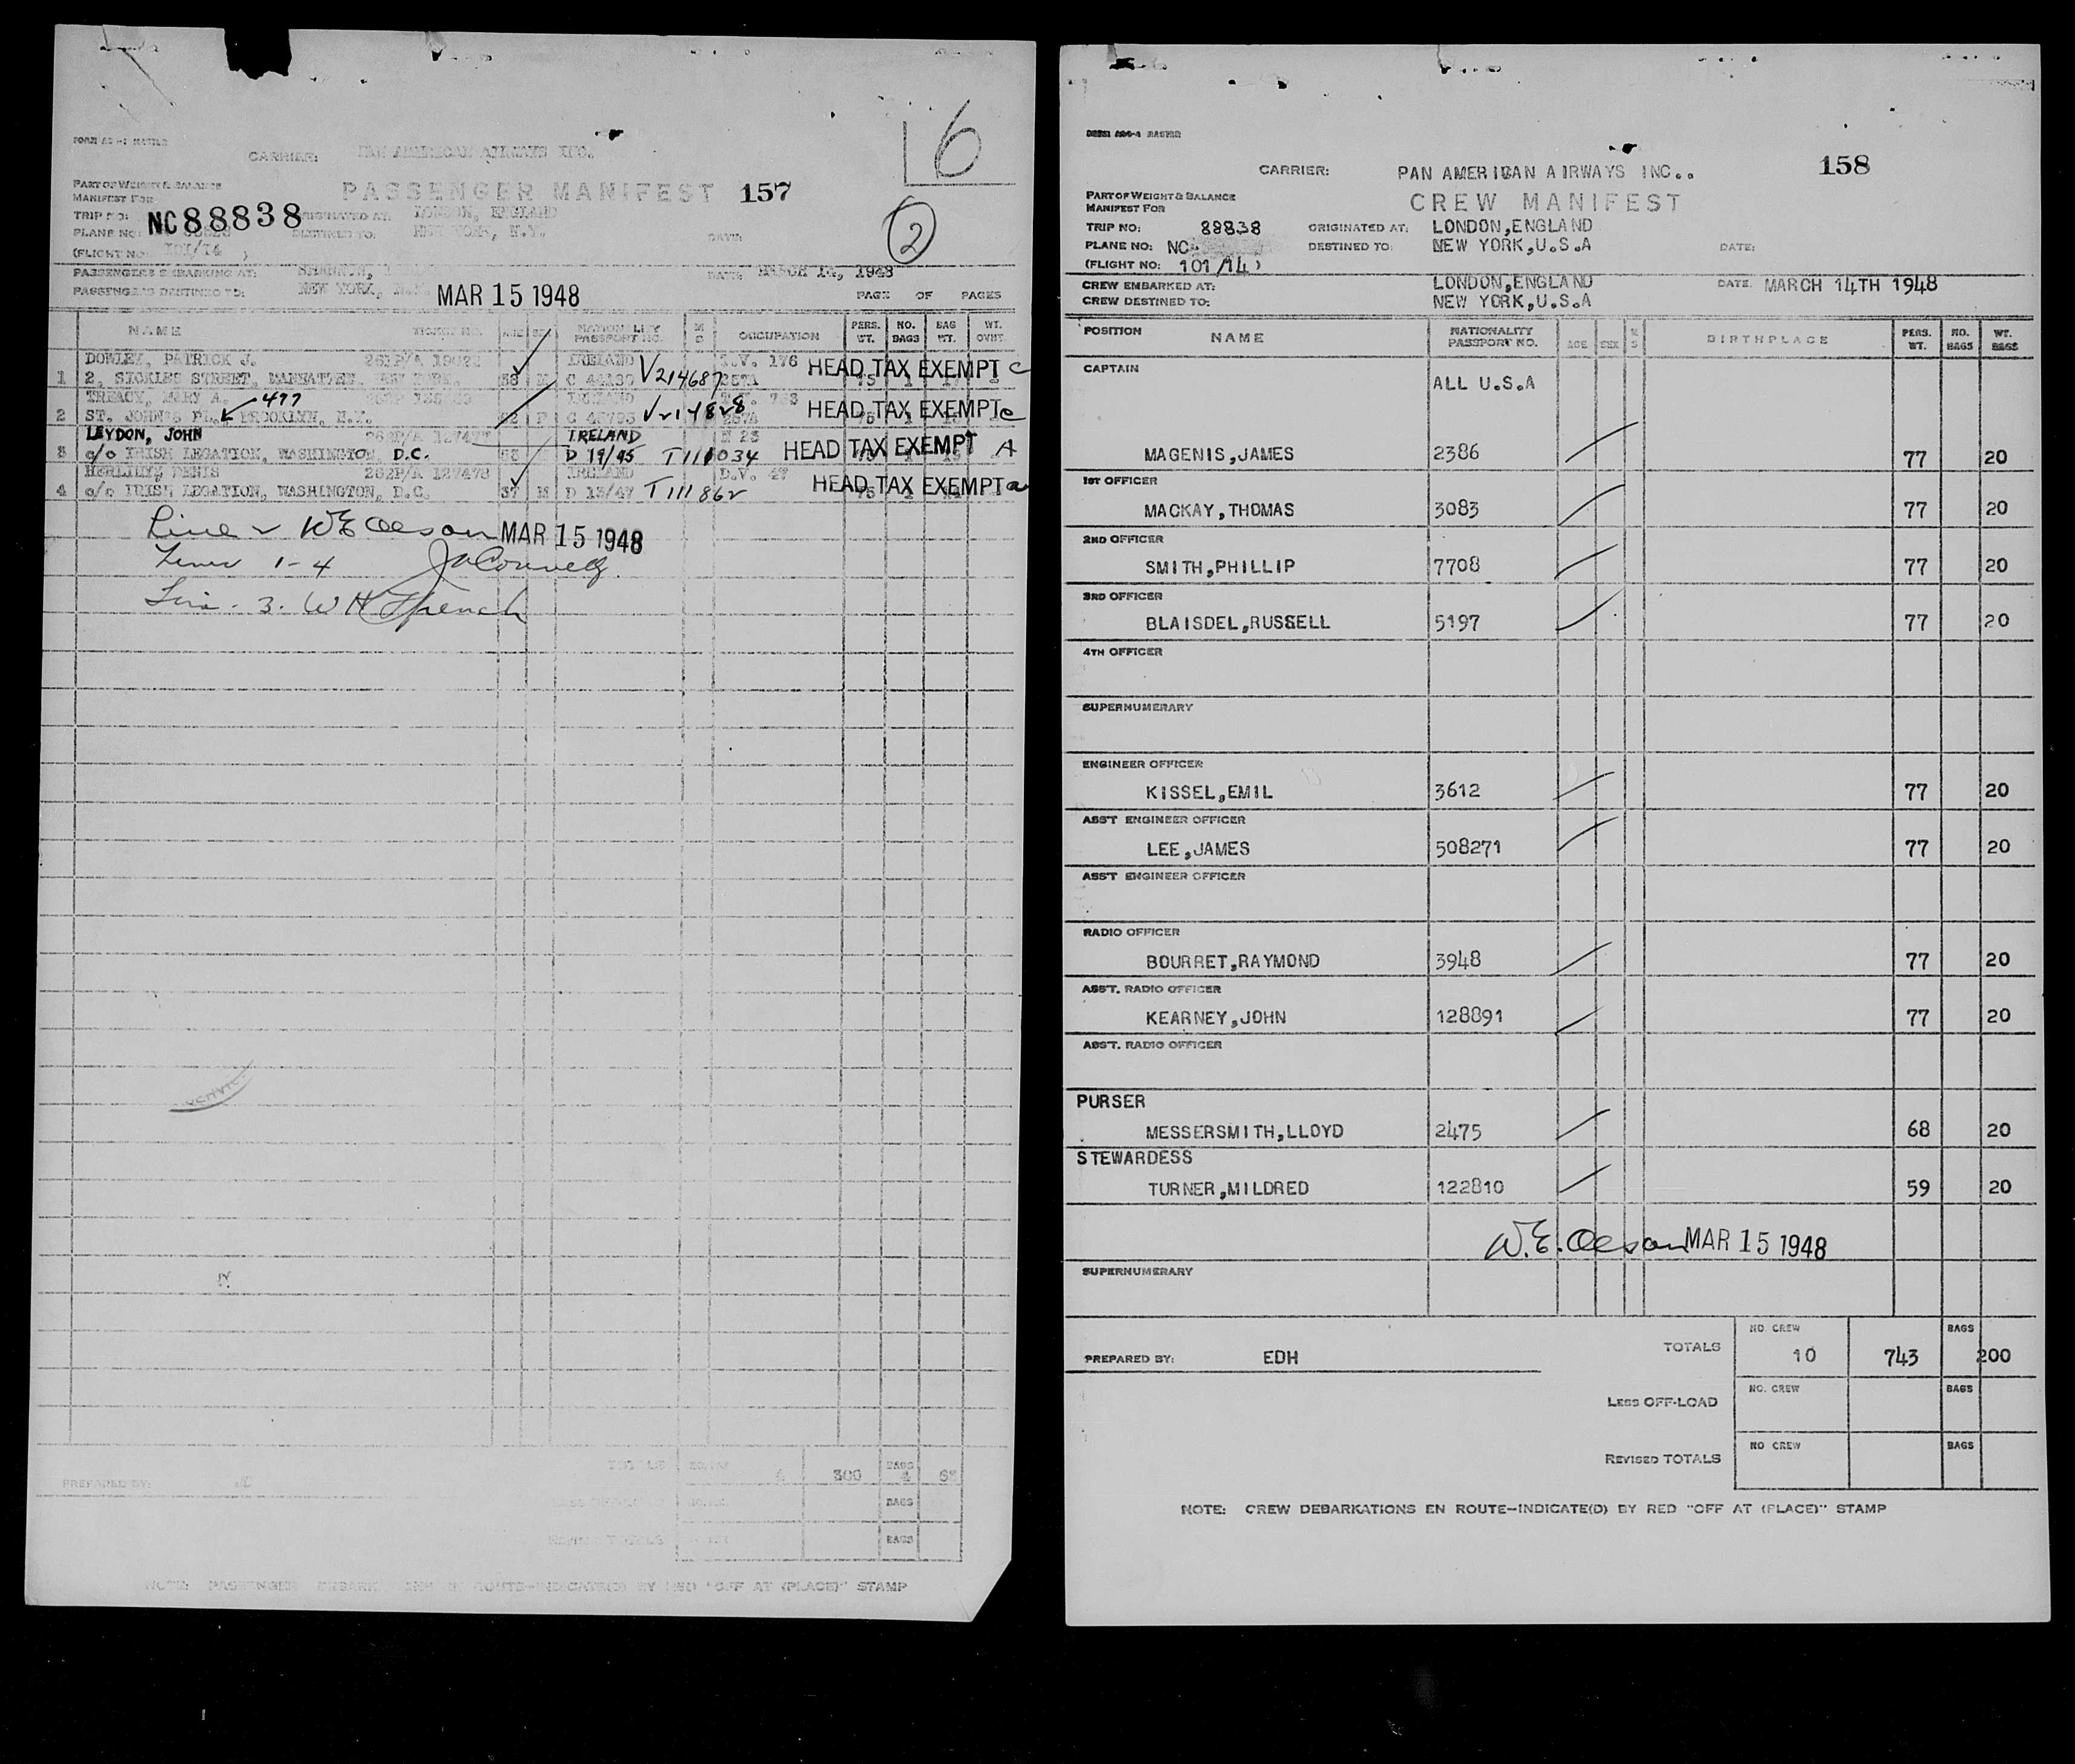 16
CARRIER: PAN AMERICAN AIRWAYS INC.
PART OF WEIGHT & BALANCE
PASSENGER MANIFEST 157
MANIFEST FOR
TRIP NO: NC88838 ORIGINATED AT: LONDON, ENGLAND
PLANE NO: DESTINED TO: NEW YORK, N.Y. DATE:
2
(FLIGHT NO: 101/14 )
PASSENGERS EMBARKING AT: SHANNON, DATE: MARCH 14, 1948
PASSENGERS DESTINED TO: NEW YORK, MAR 15 1948 PAGE OF PAGES
NAME TICKET NO. AGE SEX NATIONALITY PASSPORT NO. M S OCCUPATION PERS. WT. NO. BAGS BAG WT. WT. OVHT.
DOWLEY, PATRICK J. IRELAND I.V. 176 HEAD TAX EXEMPT C
1 2, SICKLES STREET, MANHATTEN, NEW YORK. 38 M V214687
TREACY, MARY A. 477 IRELAND
2 ST. JOHNS PL., BROOKLYN, N.Y. F V214828 HEAD TAX EXEMPT c
LEYDON, JOHN IRELAND
3 c/o IRISH LEGATION, WASHINGTON, D.C. D 19/45 T111034 HEAD TAX EXEMPT A
HERLIHY, DENIS 262P/A 127478 IRELAND D.V. 47
4 c/o IRISH LEGATION, WASHINGTON, D.C. 37 M D 13/47 T111862 HEAD TAX EXEMPT a
Line 2 W E Oleson MAR 15 1948
Lines 1-4
Line 3. W H French
PREPARED BY: TOTALS 4 300 BAGS 4
BAGS
BAGS
NOTE: PASSENGER DEBARKATIONS EN ROUTE-INDICATE(D) BY RED "OFF AT (PLACE)" STAMP
CARRIER: PAN AMERICAN AIRWAYS INC.. 158
PART OF WEIGHT & BALANCE
MANIFEST FOR
CREW MANIFEST
TRIP NO: 88838 ORIGINATED AT: LONDON,ENGLAND
PLANE NO: NC DESTINED TO: NEW YORK,U.S.A DATE:
(FLIGHT NO: 101/14 )
CREW EMBARKED AT: LONDON,ENGLAND DATE. MARCH 14TH 1948
CREW DESTINED TO: NEW YORK,U.S.A
POSITION NAME NATIONALITY PASSPORT NO. AGE SEX M S BIRTHPLACE PERS. WT. NO. BAGS WT. BAGS
CAPTAIN
ALL U.S.A
MAGENIS,JAMES 2386 77 20
1ST OFFICER
MACKAY,THOMAS 3083 77 20
2ND OFFICER
SMITH,PHILLIP 7708 77 20
3RD OFFICER
BLAISDEL,RUSSELL 5197 77 20
4TH OFFICER
SUPERNUMERARY
ENGINEER OFFICER
KISSEL,EMIL 3612 77 20
ASST ENGINEER OFFICER
LEE,JAMES 508271 77 20
ASST ENGINEER OFFICER
RADIO OFFICER
BOURRET,RAYMOND 3948 77 20
ASST. RADIO OFFICER
KEARNEY,JOHN 128891 77 20
ASST. RADIO OFFICER
PURSER
MESSERSMITH,LLOYD 2475 68 20
STEWARDESS
TURNER,MILDRED 122810 59 20
W.E. Oleson MAR 15 1948
SUPERNUMERARY
NO. CREW BAGS
PREPARED BY: EDH TOTALS 10 743 200
NO. CREW BAGS
LESS OFF-LOAD
NO CREW BAGS
REVISED TOTALS
NOTE: CREW DEBARKATIONS EN ROUTE-INDICATE(D) BY RED "OFF AT (PLACE)" STAMP